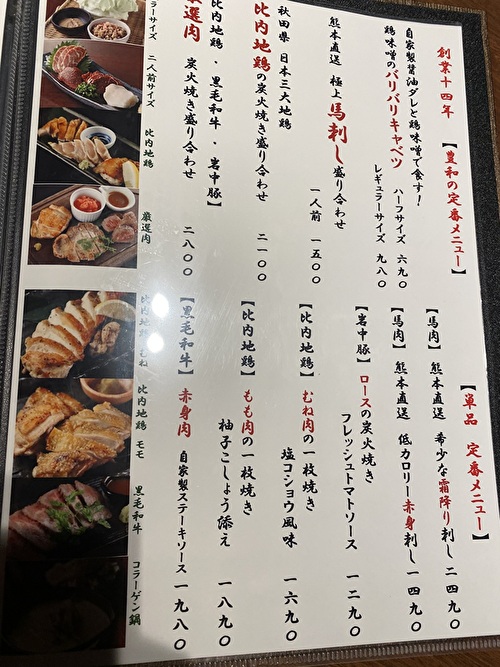 創業十四年 【豊和の定番メニュー】
自家製醤油ダレと鶏味噌で食す！
鶏味噌のバリバリキャベツ
ハーフサイズ 六九〇
レギュラーサイズ 九八〇
熊本直送 極上馬刺し盛り合わせ
一人前 一五〇〇
秋田県 日本三大地鶏
比内地鶏の炭火焼き盛り合わせ
二一〇〇
比内地鶏・黒毛和牛・岩中豚】
厳選肉 炭火焼き盛り合わせ
二八〇〇
【単品 定番メニュー】
【馬肉】 熊本直送 希少な霜降り刺し 二四九〇
【馬肉】 熊本直送 低カロリー赤身刺し 一四九〇
【岩中豚】 ロースの炭火焼き
フレッシュトマトソース 一二九〇
【比内地鶏】 むね肉の一枚焼き
塩コショウ風味 一六九〇
【比内地鶏】 もも肉の一枚焼き
柚子こしょう添え 一八九〇
【黒毛和牛】 赤身肉 自家製ステーキソース 一九八〇
ラーサイズ
二人前サイズ
比内地鶏
厳選肉
比内地鶏むね
比内地鶏 モモ
黒毛和牛
コラーゲン鍋